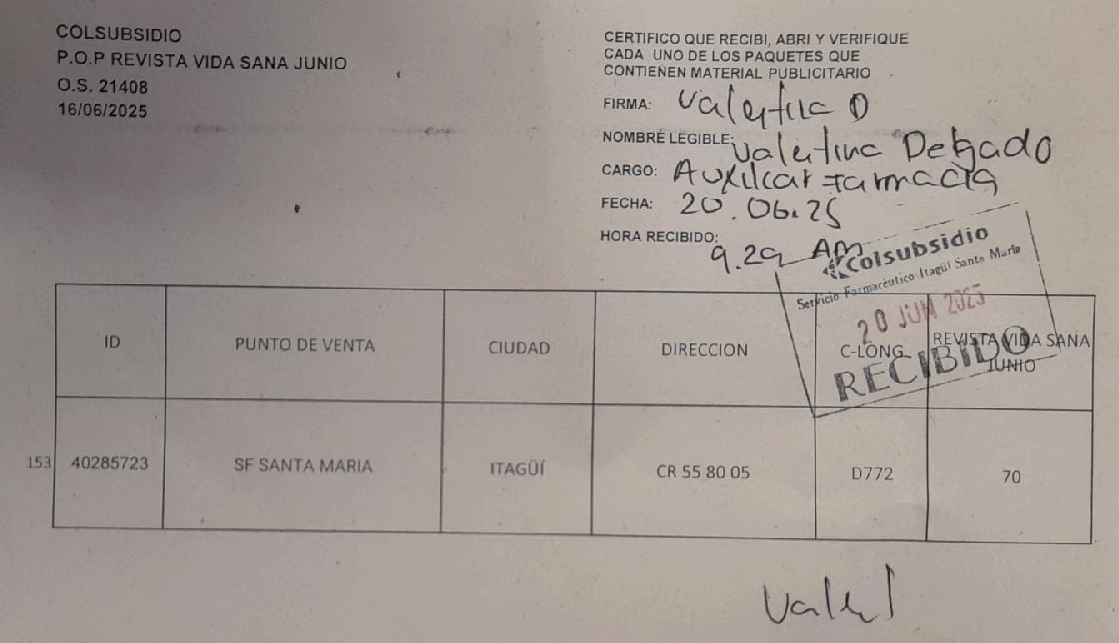 COLSUBSIDIO
P.O.P REVISTA VIDA SANA JUNIO
O.S. 21408
16/06/2025
CERTIFICO QUE RECIBI, ABRI Y VERIFIQUE
CADA UNO DE LOS PAQUETES QUE
CONTIENEN MATERIAL PUBLICITARIO
FIRMA: Valentina D
NOMBRE LEGIBLE: Valentina Delgado
CARGO: Auxiliar Farmacia
FECHA: 20.06.25
HORA RECIBIDO: 9.29 AM
Colsubsidio
Servicio Farmacéutico Itagüí Santa María
20 JUN 2025
RECIBIDO
ID PUNTO DE VENTA CIUDAD DIRECCION C-LONG REVISTA VIDA SANA JUNIO
153 40285723 SF SANTA MARIA ITAGÜÍ CR 55 80 05 D772 70